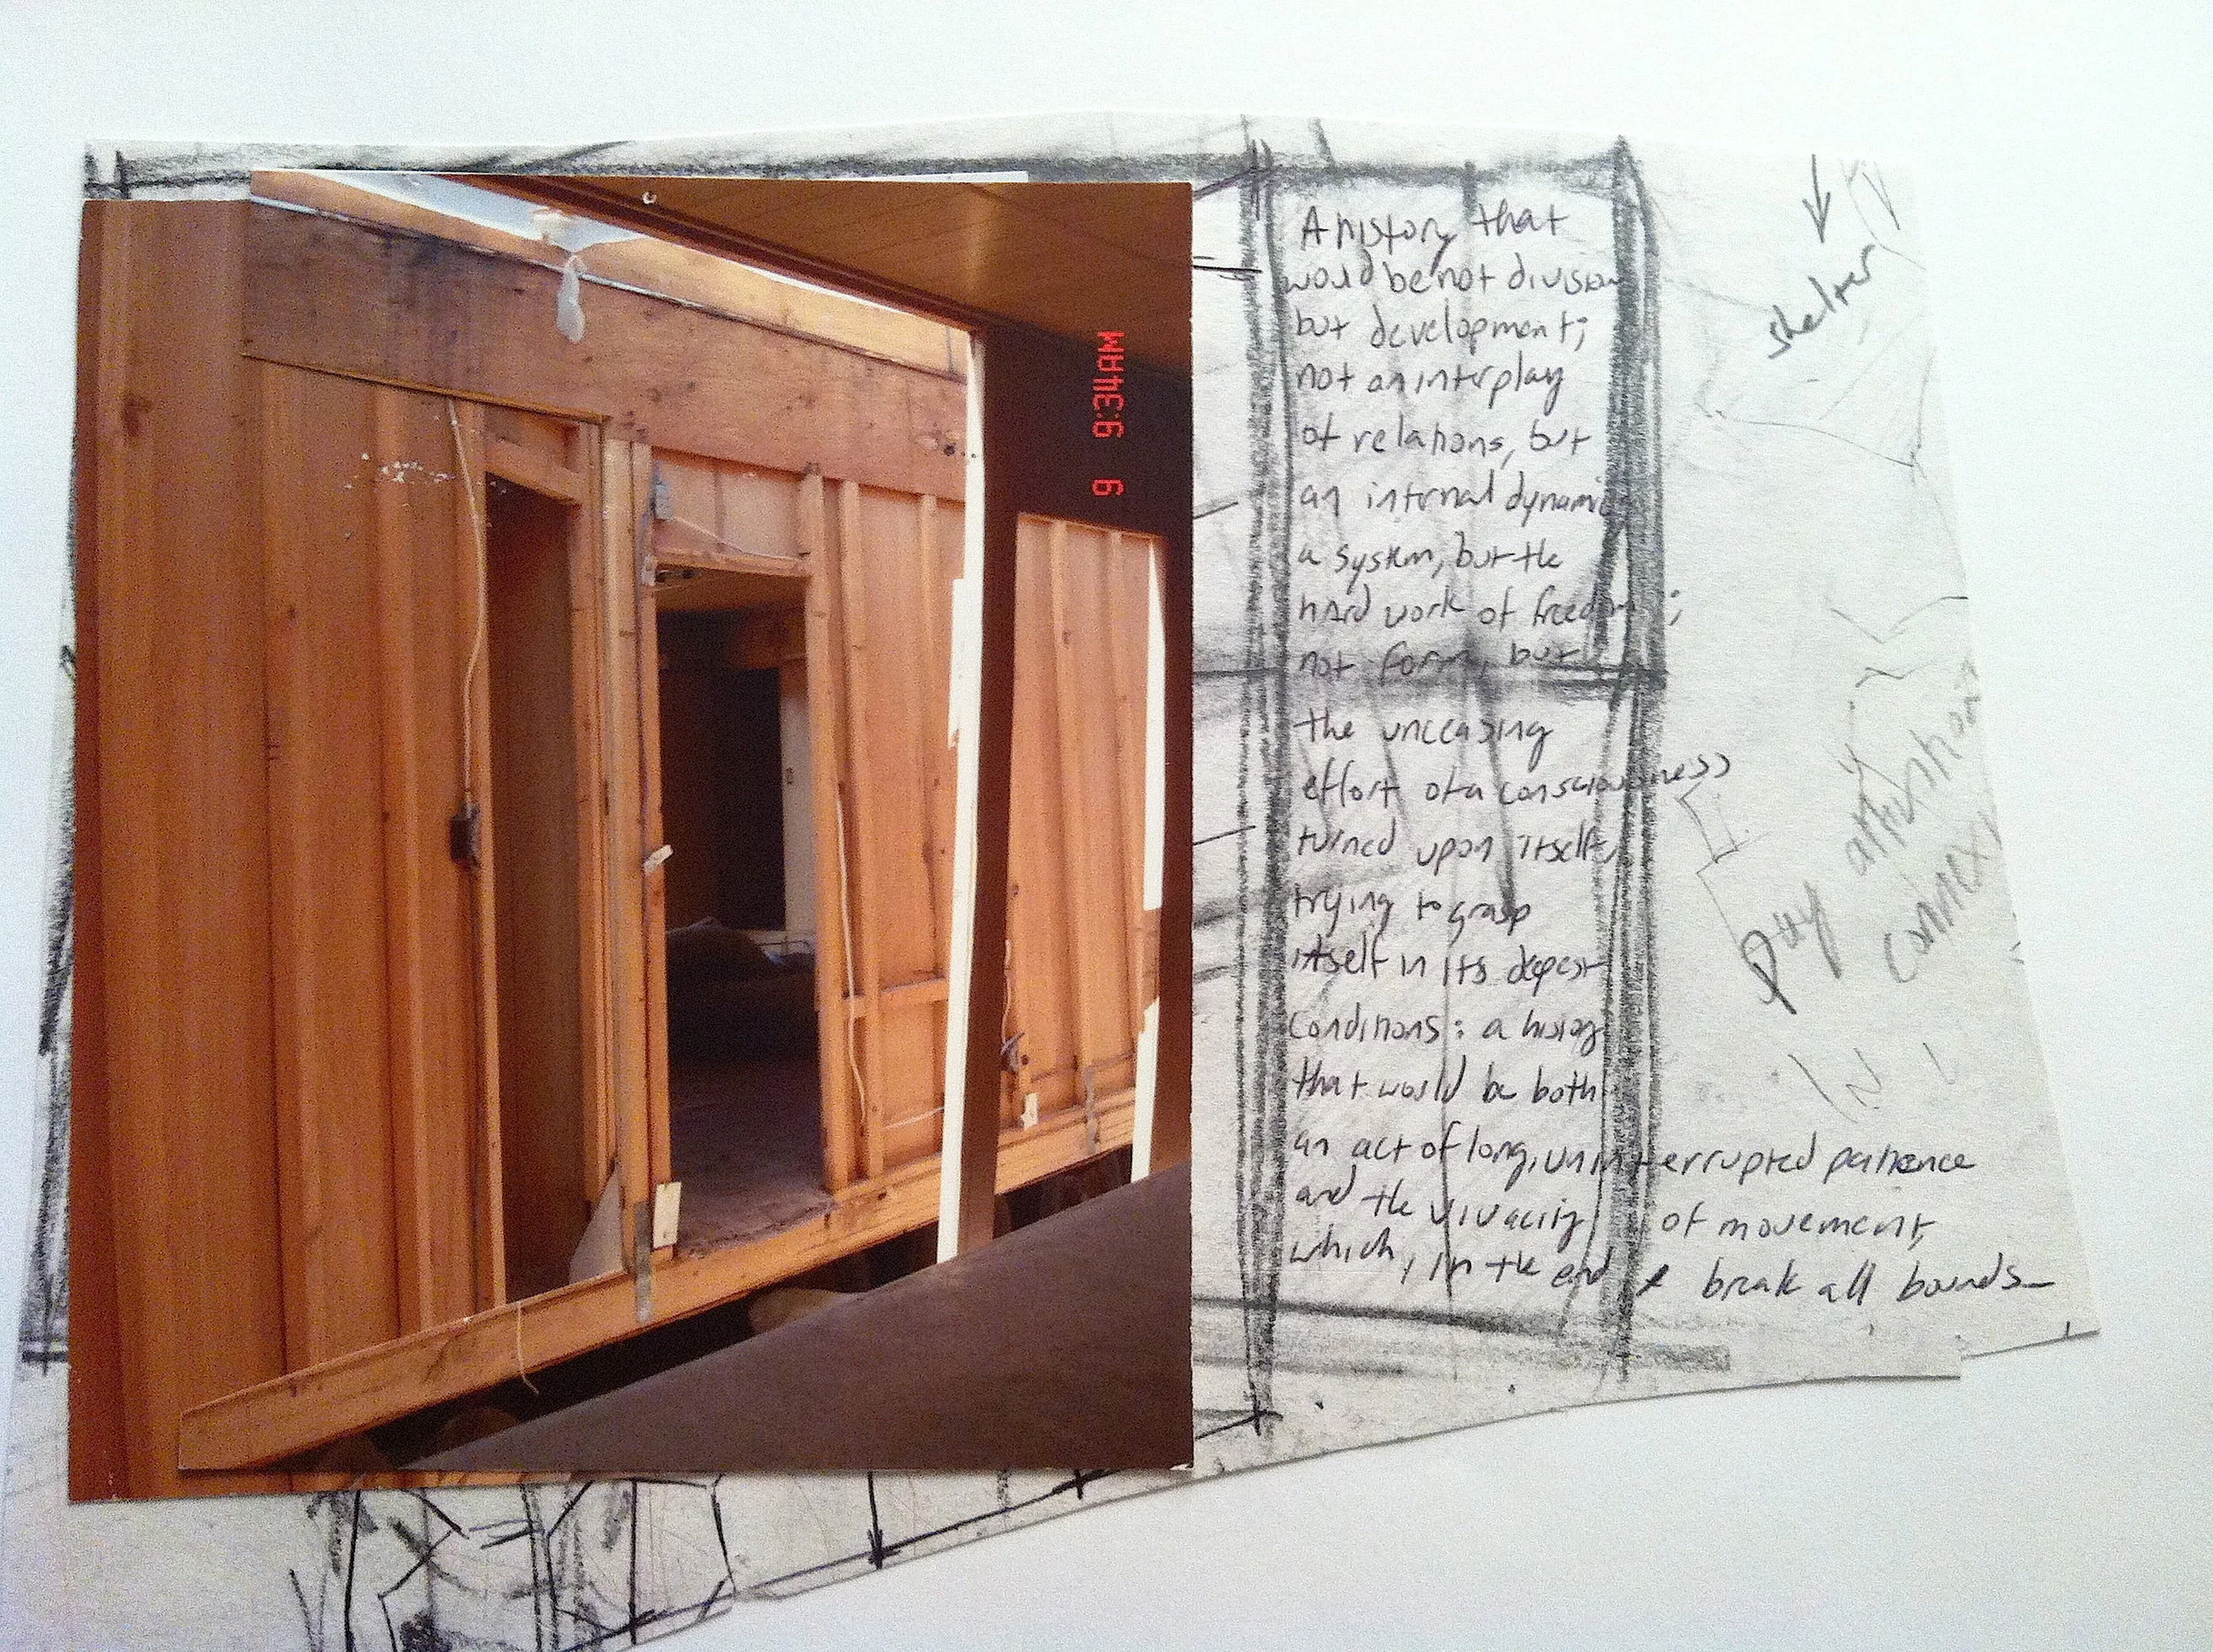 A history that
would be not division
but development;
not an interplay
of relations, but
an internal dynamic
a system, but the
hard work of freedom;
not form, but
the unceasing
effort of a consciousness
turned upon itself,
trying to grasp
itself in its deepest
conditions: a history
that would be both
an act of long, uninterrupted patience
and the vivacity of movement,
which, in the end break all bounds
shelter
pay attention
IN
9:34AM